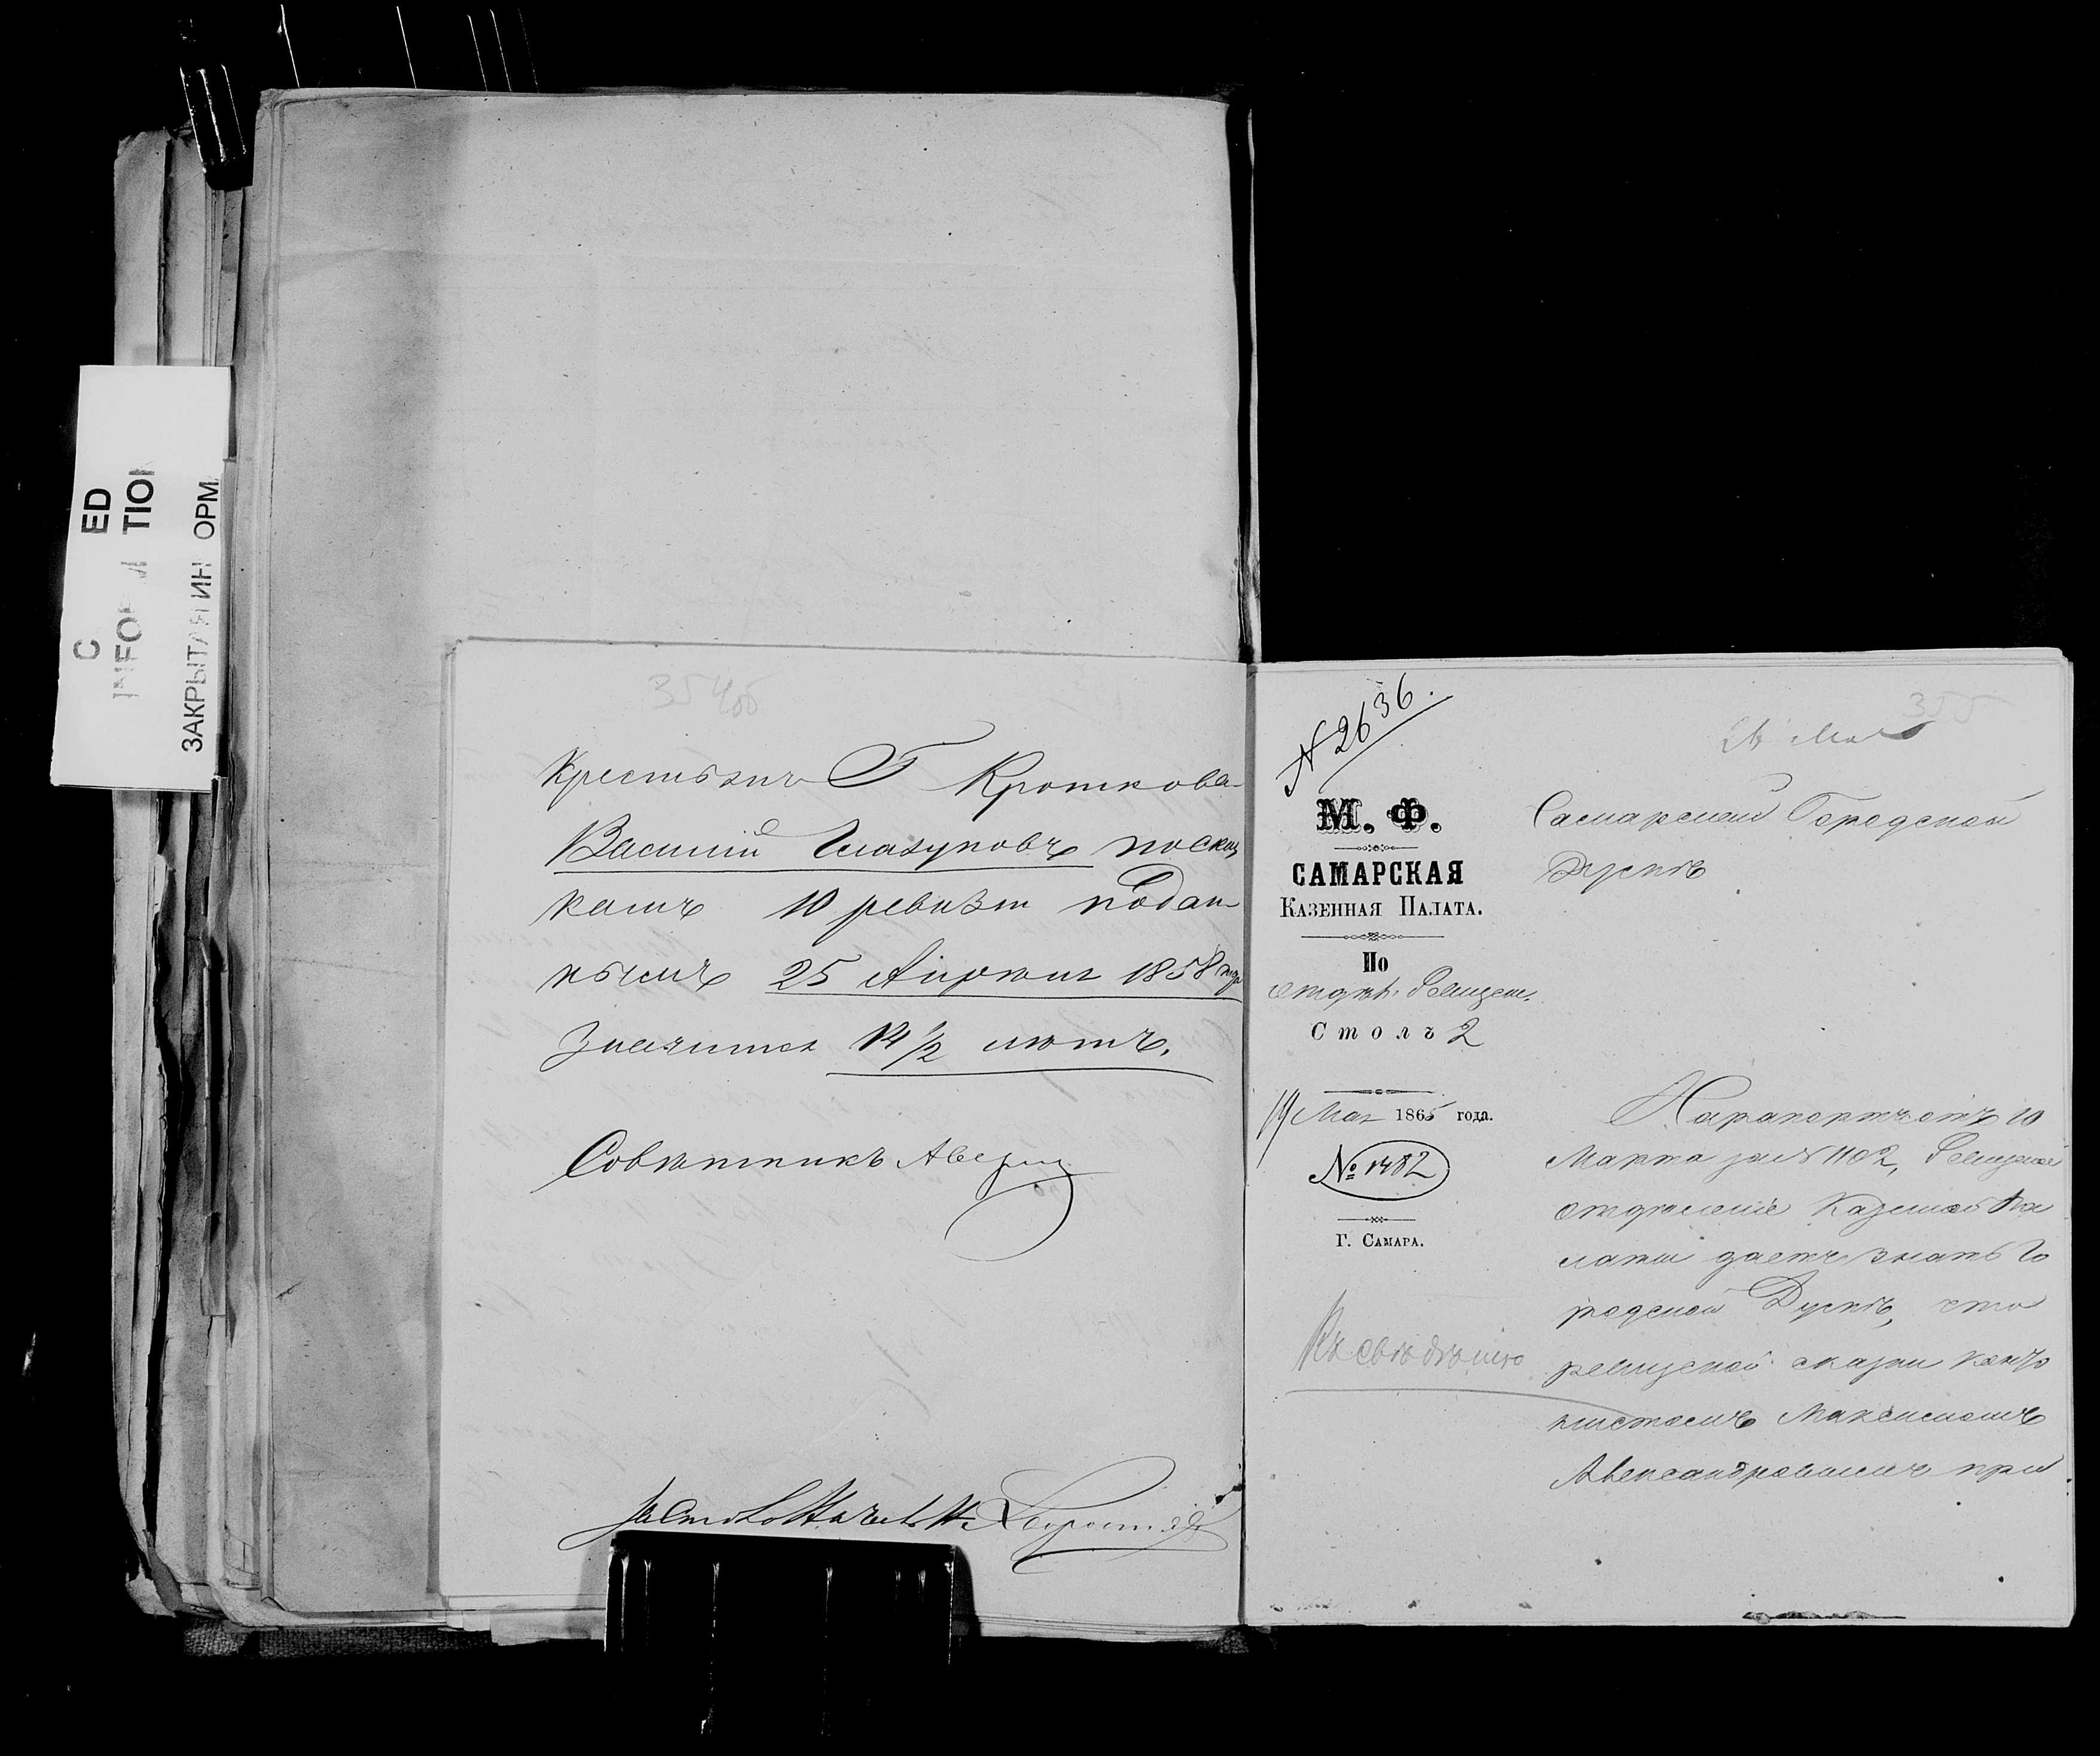 C ED
INFOR M TION
ЗАКРЫТАЯ ИН ОРМ
354об
крестьянъ Г Кроткова
Василій Глазуновъ по сказ
камъ 10 ревизіи подан
нымъ 25 Апрѣля 1858 года
значится 14 1/2 лѣтъ.
Совѣтникъ
355
26 Мая
N 2636.
М. Ф.
САМАРСКАЯ
КАЗЕННАЯ ПАЛАТА.
По
отдѣл. Ревизск.
Столъ 2
19 Мая 1865 года.
№ 1482
Г. САМАРА.
Къ свѣдѣнію
Самарской Городской
Думѣ
На рапортъ отъ 10
Марта за № 1102, Ревизское
отдѣленіе Казенной Па
латы даетъ знать Го
родской Думѣ, что
ревизской сказки
Максимомъ
Александровымъ при